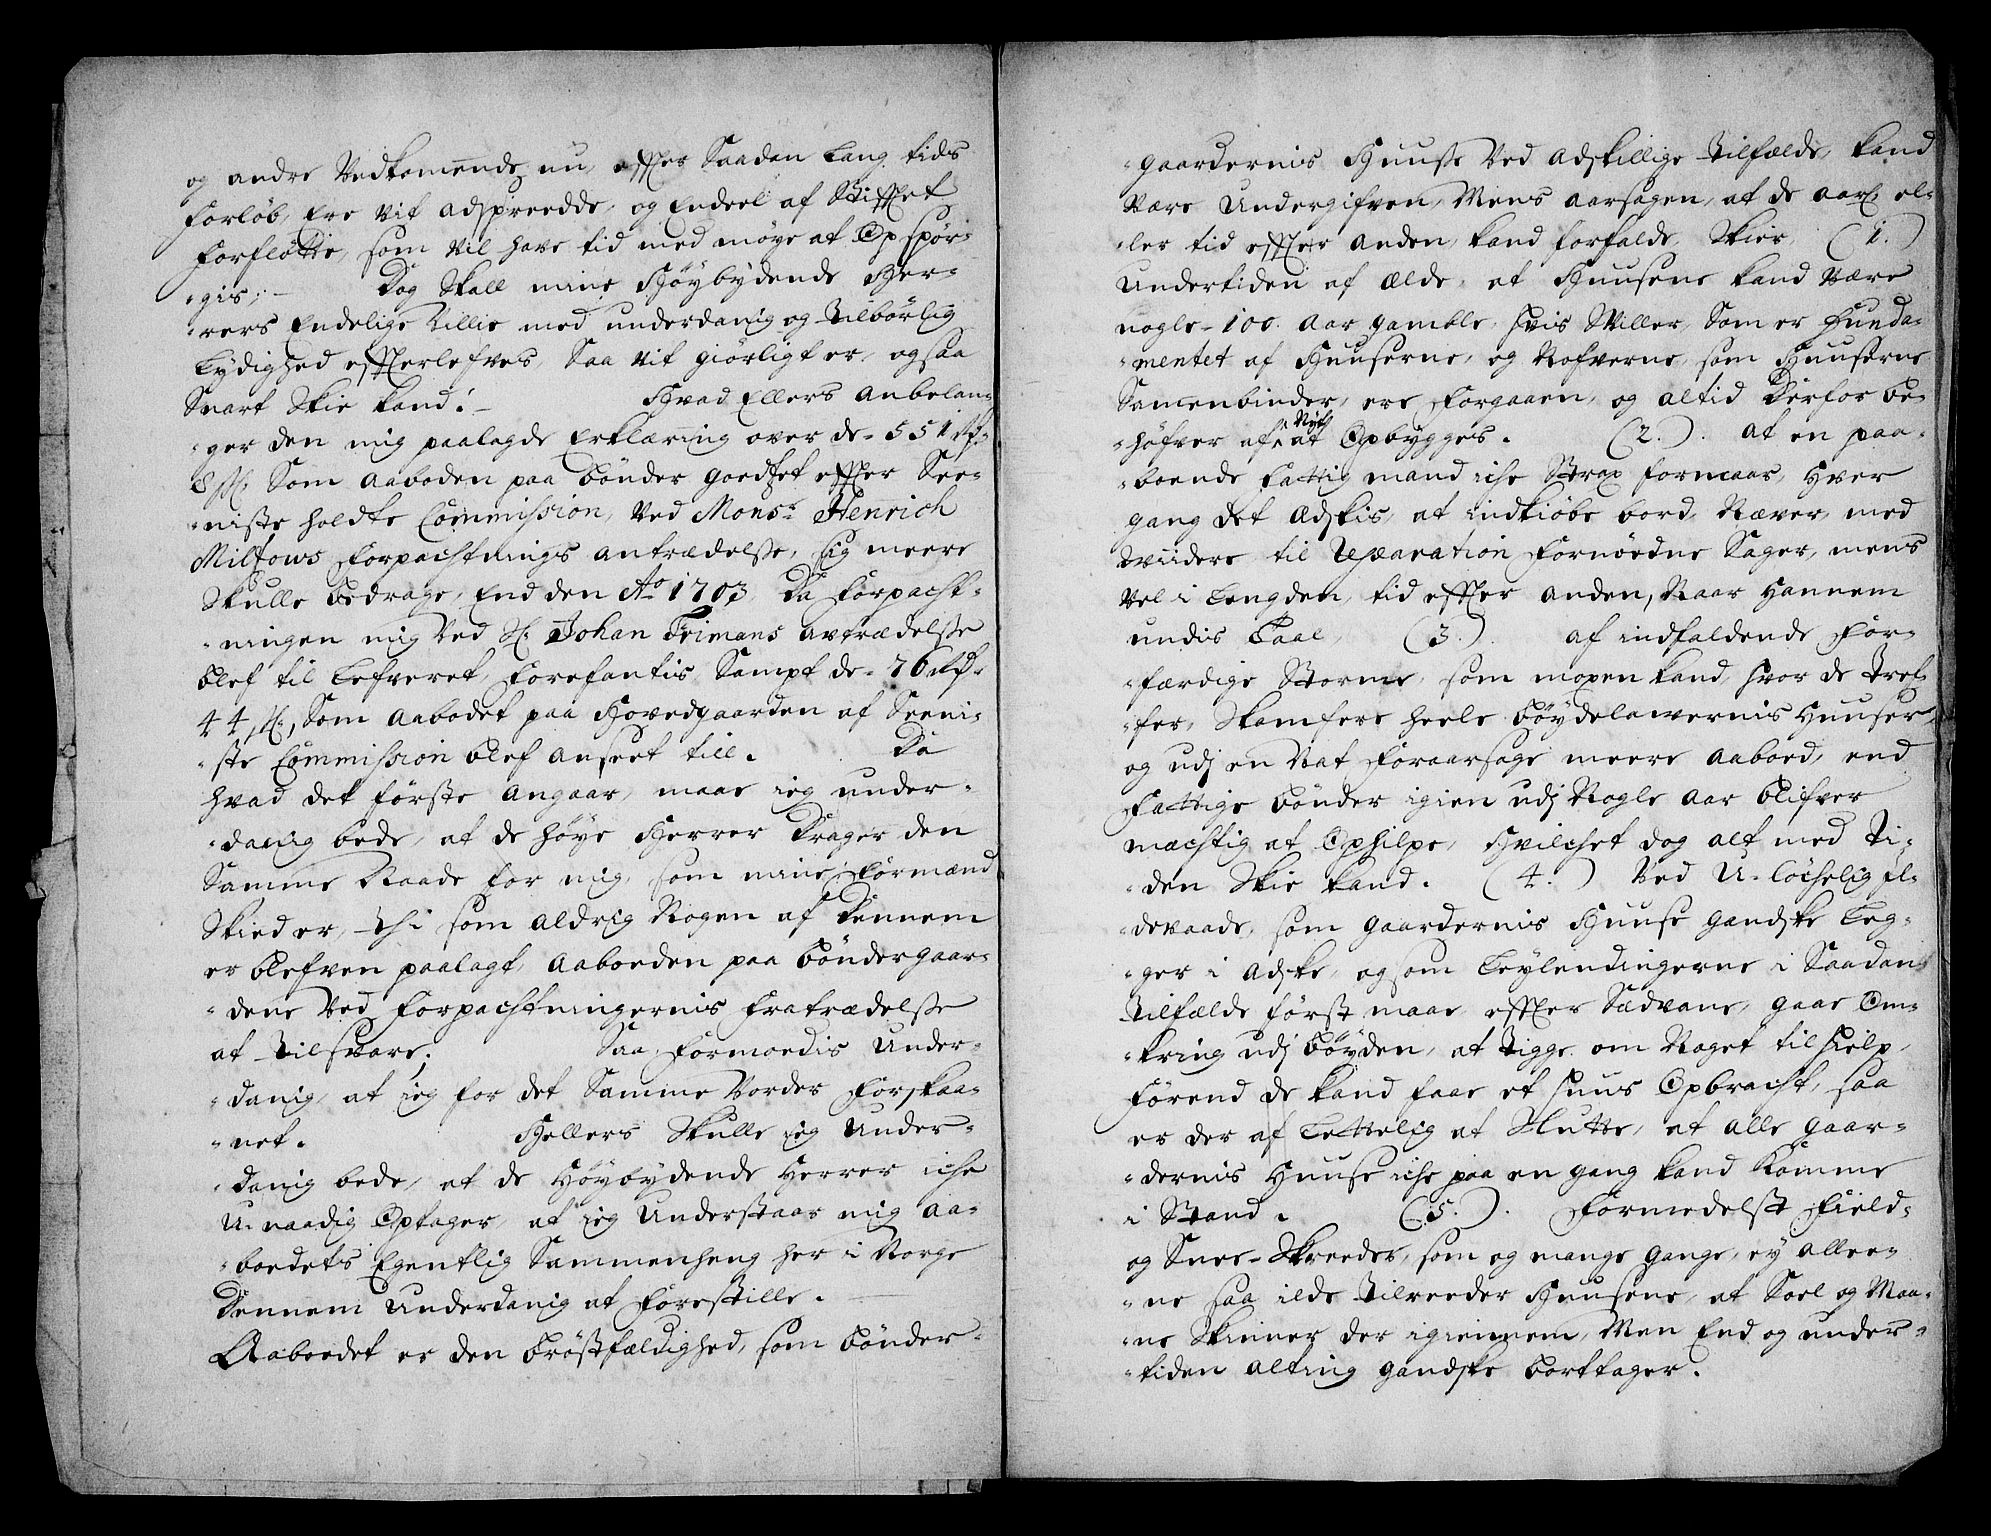 og andre Vedkomende nu, effter Saadan Lang tids
forløb, Ere vit adspreedde, og Endeel af Stifftet
forfløtte, som vil have tid med møye at Opspør-
-gis; - Dog Skall mine Høybydende Her-
-rers Endelige Villie med underdanig og Tilbørlig
Lydighed effterlefves, Saa vit giørligt er, og saa
Snart Skie kand: -  Hvad Ellers anbelan-
-ger den mig paalagde Erklæring over de = 551 Rd.
8 sk. Som aaboden paa bønder goedtzet effter See-
-niste holdte Commission, Ved Monsr. Henrich
Miltzows forpachtnings antrædelse, sig meere
Skulle bedrage, End den Ao 1703, Da forpacht-
-ningen mig Ved Sl. Johan Frimans avtrædelse
blef til Lefveret, forefantis, Sampt de = 76 Rd.
44 sk., Som aabodet paa Hovedgaarden af Seeni-
-ste Commission blef anseet till. Da
hvad det første angaar, maae ieg under-
-danig bede, at de høye Herrer Drager den
Samme Naade for mig, som mine formænd
Skied er, Thi som aldrig Nogen af Dennem
er blefven paalagt, aaboeden paa bøndergaar-
-dene Ved forpachtningernis fratrædelse
at Tilsvare; Saa formoedis Under-
-danig, at ieg for det Samme Vorder forskaa-
-net. Hellers Skulle ieg Under-
-danig bede, at de Høybydende Herrer iche
U-naadig Optager, at ieg Understaar mig aa-
-boedets Egentlig Sammenheng her i Norge
Dennem Underdanig at forestille.
Aaboedet er den brøstfældighed, som bønder-
-gaardernis Huuse Ved adskillige Tilfælde, kand
være Undergifven, Mens aarsagen, at de aarl. el-
-ler tid effter anden, kand forfalde, Skier, (1.)
Undertiden af Ælde, at Huusene kand være
nogle = 100. aar gamble, hvis Stiller, Som er Funda-
-mentet af Huuserne, og Nofverne, som Huuserne
Samenbinder, ere forgaaen, og altid Derfor be-
-høfver af Nyt at Opbygges. (2.). At en paa-
-boende fattig mand iche Strax formaar, Hver
gang det Adskis, at indkiøbe bord, Næver, med
Viidere til Reparation fornøedne Sager, mens
Vel i Lengden, tid effter anden, Naar Hannem
undis Taal, (3.). Af indfaldende for-
-færdige Storme, som mopen kand, hvor de Tref-
-fer, Skamfere heele bøydelawernis Huuser,
og udj en Nat foraarsage meere aaboed, end
fattige bønder igien udj Nogle aar blifver
mæchtig at Ophilpe, Hvilchet dog alt med Ti-
-den Skie kand. (4.) Ved U-løchelig Il-
-devaade, som gaardernis Huuse gandske Leg-
-ger i Adske, og som Leylendingerne i Saadan
Tilfælde først maae effter Sædvane, gaae Om-
-kring udj bøyden, at Tigge om Noget til hielp,
førend de kand faae et Huus Opbracht, saa
er der af Lettelig at Slutte, at alle gaar-
-dernis Huuse iche paa en gang kand komme
i Stand. (5.). Formedelst Field-
og Snee-Skreeder, som og mange gange, ey allee-
-ne saa ilde Tilreeder Huusene, at Soel og Maa-
-ne Skinner der igiennem, Men End og under-
-tiden alting gandske borttager.